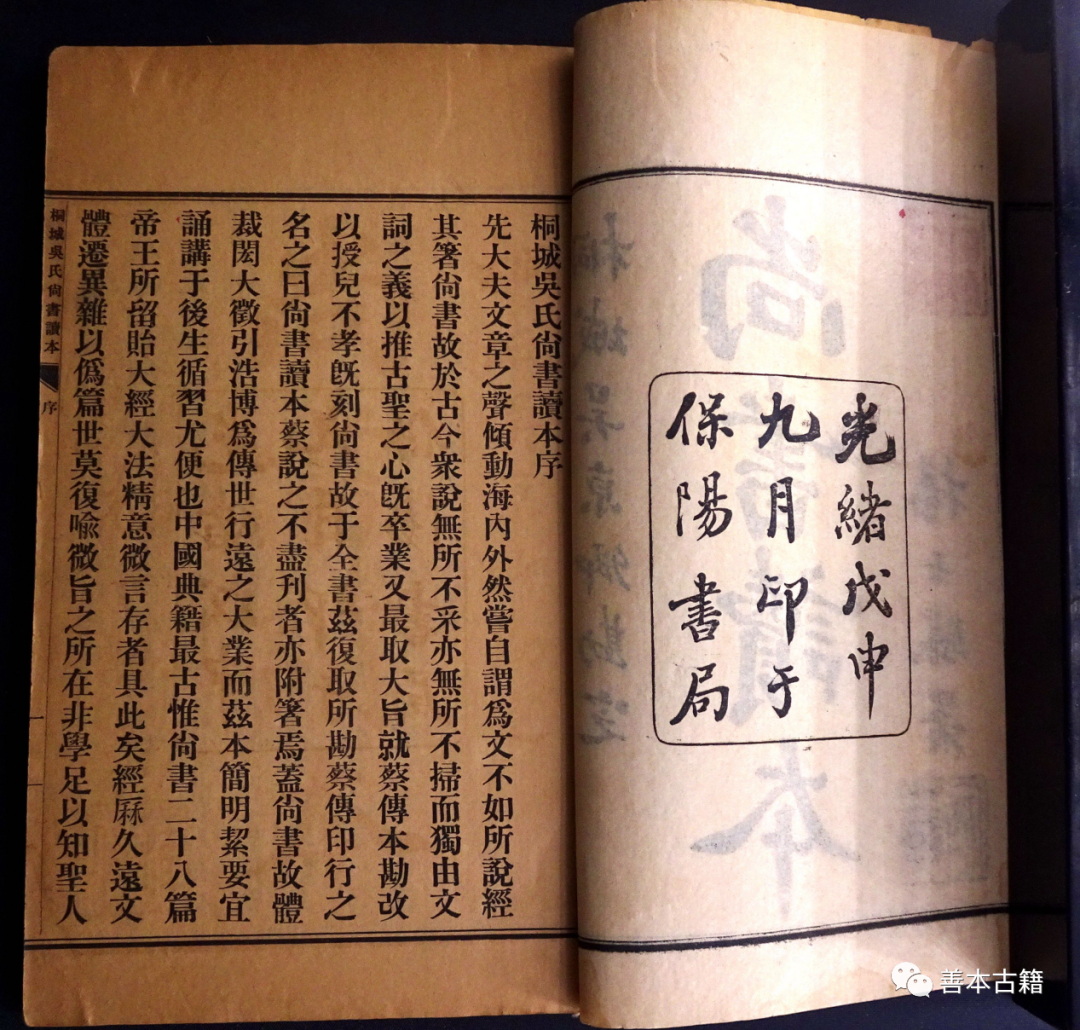 光緒戊申
九月印于
保陽書局
桐城吳氏尙書讀本序
先大夫文章之聲傾動海內外然嘗自謂爲文不如所說經
其箸尙書故於古今衆說無所不采亦無所不掃而獨由文
詞之義以推古聖之心旣卒業又最取大旨就蔡傳本勘改
以授兒不孝旣刻尙書故于全書茲復取所勘蔡傳印行之
名之曰尙書讀本蔡說之不盡刋者亦附箸焉蓋尙書故體
裁閎大徵引浩博爲傳世行遠之大業而茲本簡明絜要宜
誦講于後生循習尤便也中國典籍最古惟尙書二十八篇
帝王所留貽大經大法精意微言存者具此矣經厤久遠文
體遷異雜以僞篇世莫復喻微旨之所在非學足以知聖人
桐城吳氏尙書讀本
序
善本古籍